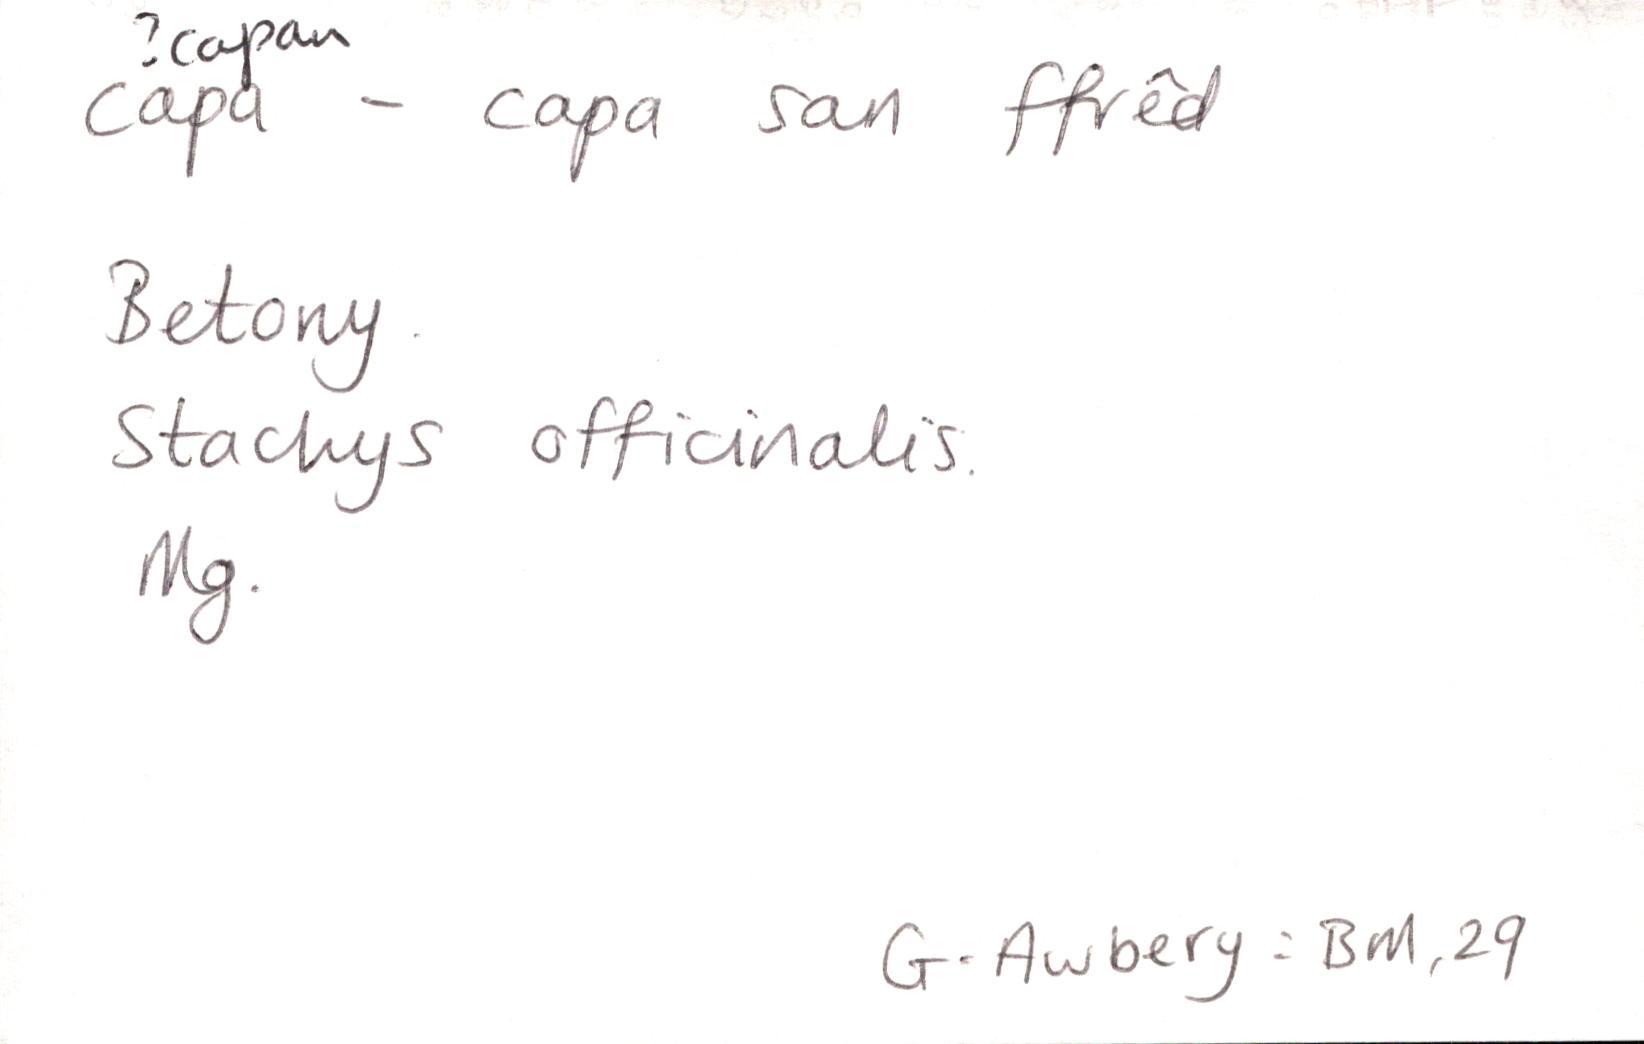 ?capan
capa - capa san ffrêd
Betony.
Stachys officinalis.
Mg.
G. Awbery: BM, 29